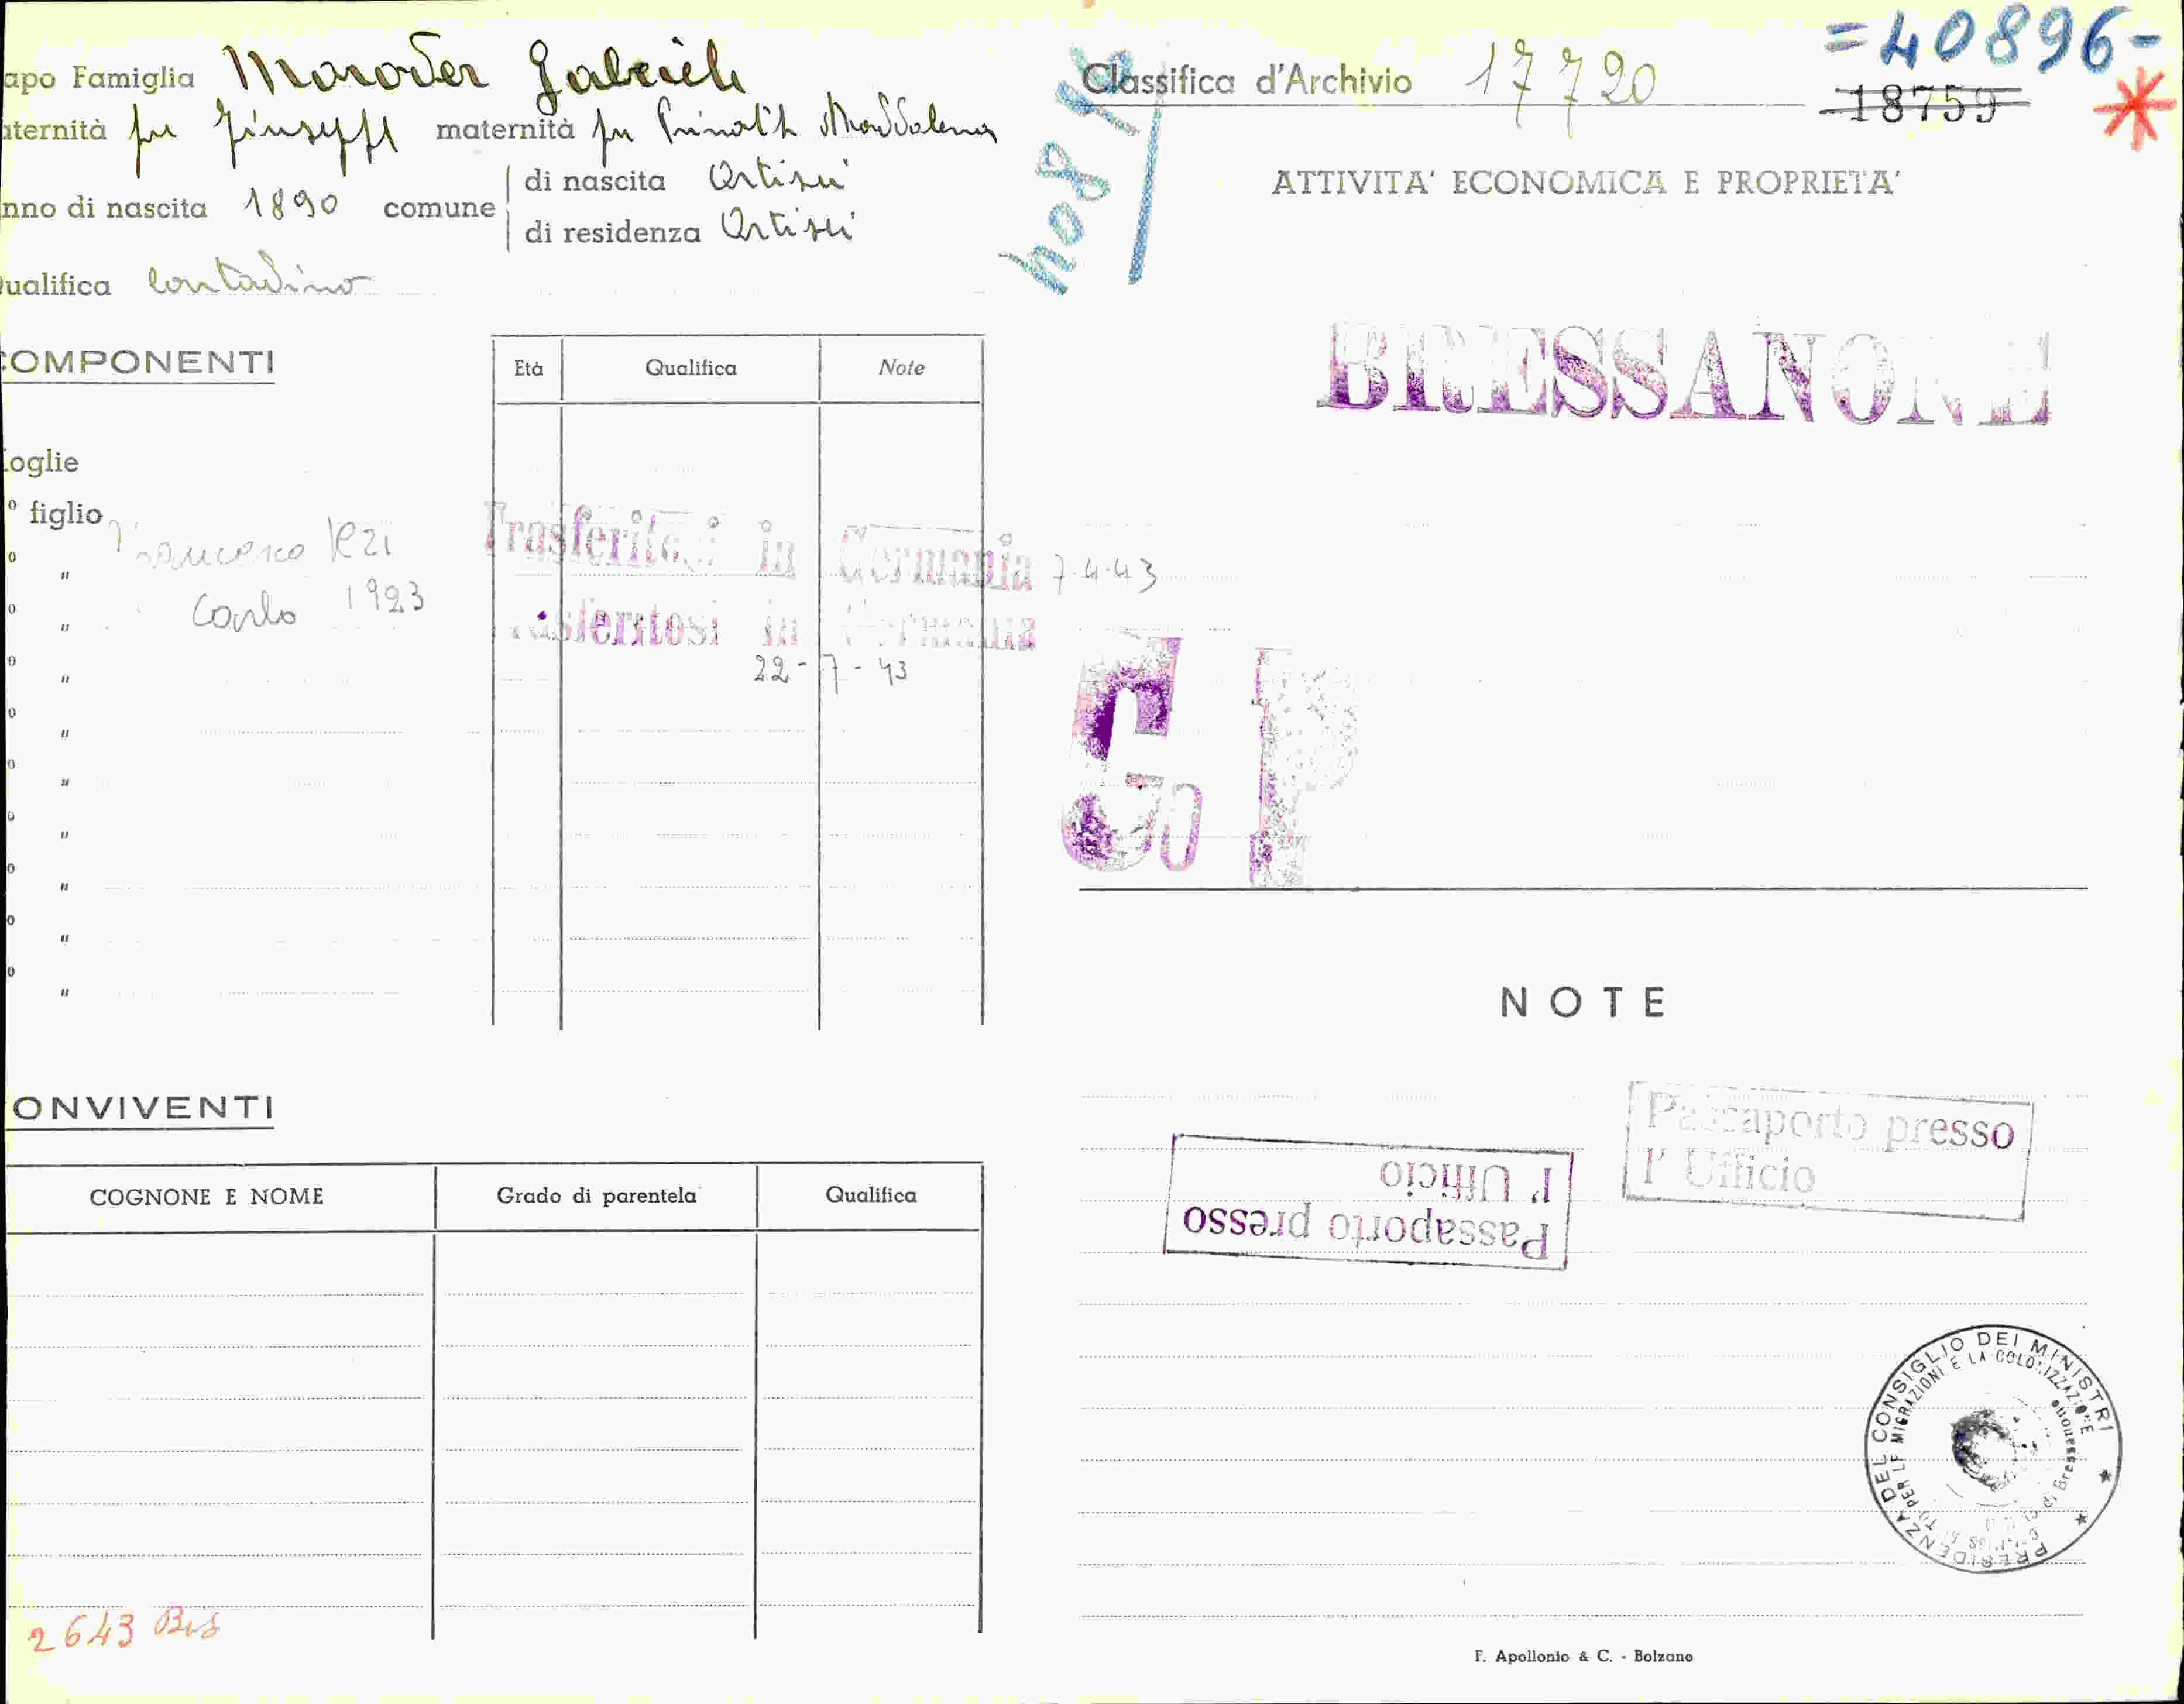 apo Famiglia Moroder Gabriele
aternità fu Giuseppe maternità fu Prinoth Maddalena
nno di nascita 1890 comune
di nascita Ortisei
di residenza Ortisei
ualifica Contadino
COMPONENTI
Età Qualifica Note
oglie
° figlio
Francesco 1921 Trasferitosi in Germania 7-4-43
" Carlo 1923 Trasferitosi in Germania
22-7-43
"
"
"
"
"
"
"
"
ONVIVENTI
COGNONE E NOME Grado di parentela Qualifica
2643 Bis
Classifica d'Archivio 17720
=40896-
18759
ATTIVITA' ECONOMICA E PROPRIETA'
BRESSANONE
G P
NOTE
Passaporto presso
l' Ufficio
Passaporto presso
l' Ufficio
PRESIDENZA DEL CONSIGLIO DEI MINISTRI
PER LE MIGRAZIONI E LA COLONIZZAZIONE
di Bressanone
F. Apollonio & C. - Bolzano